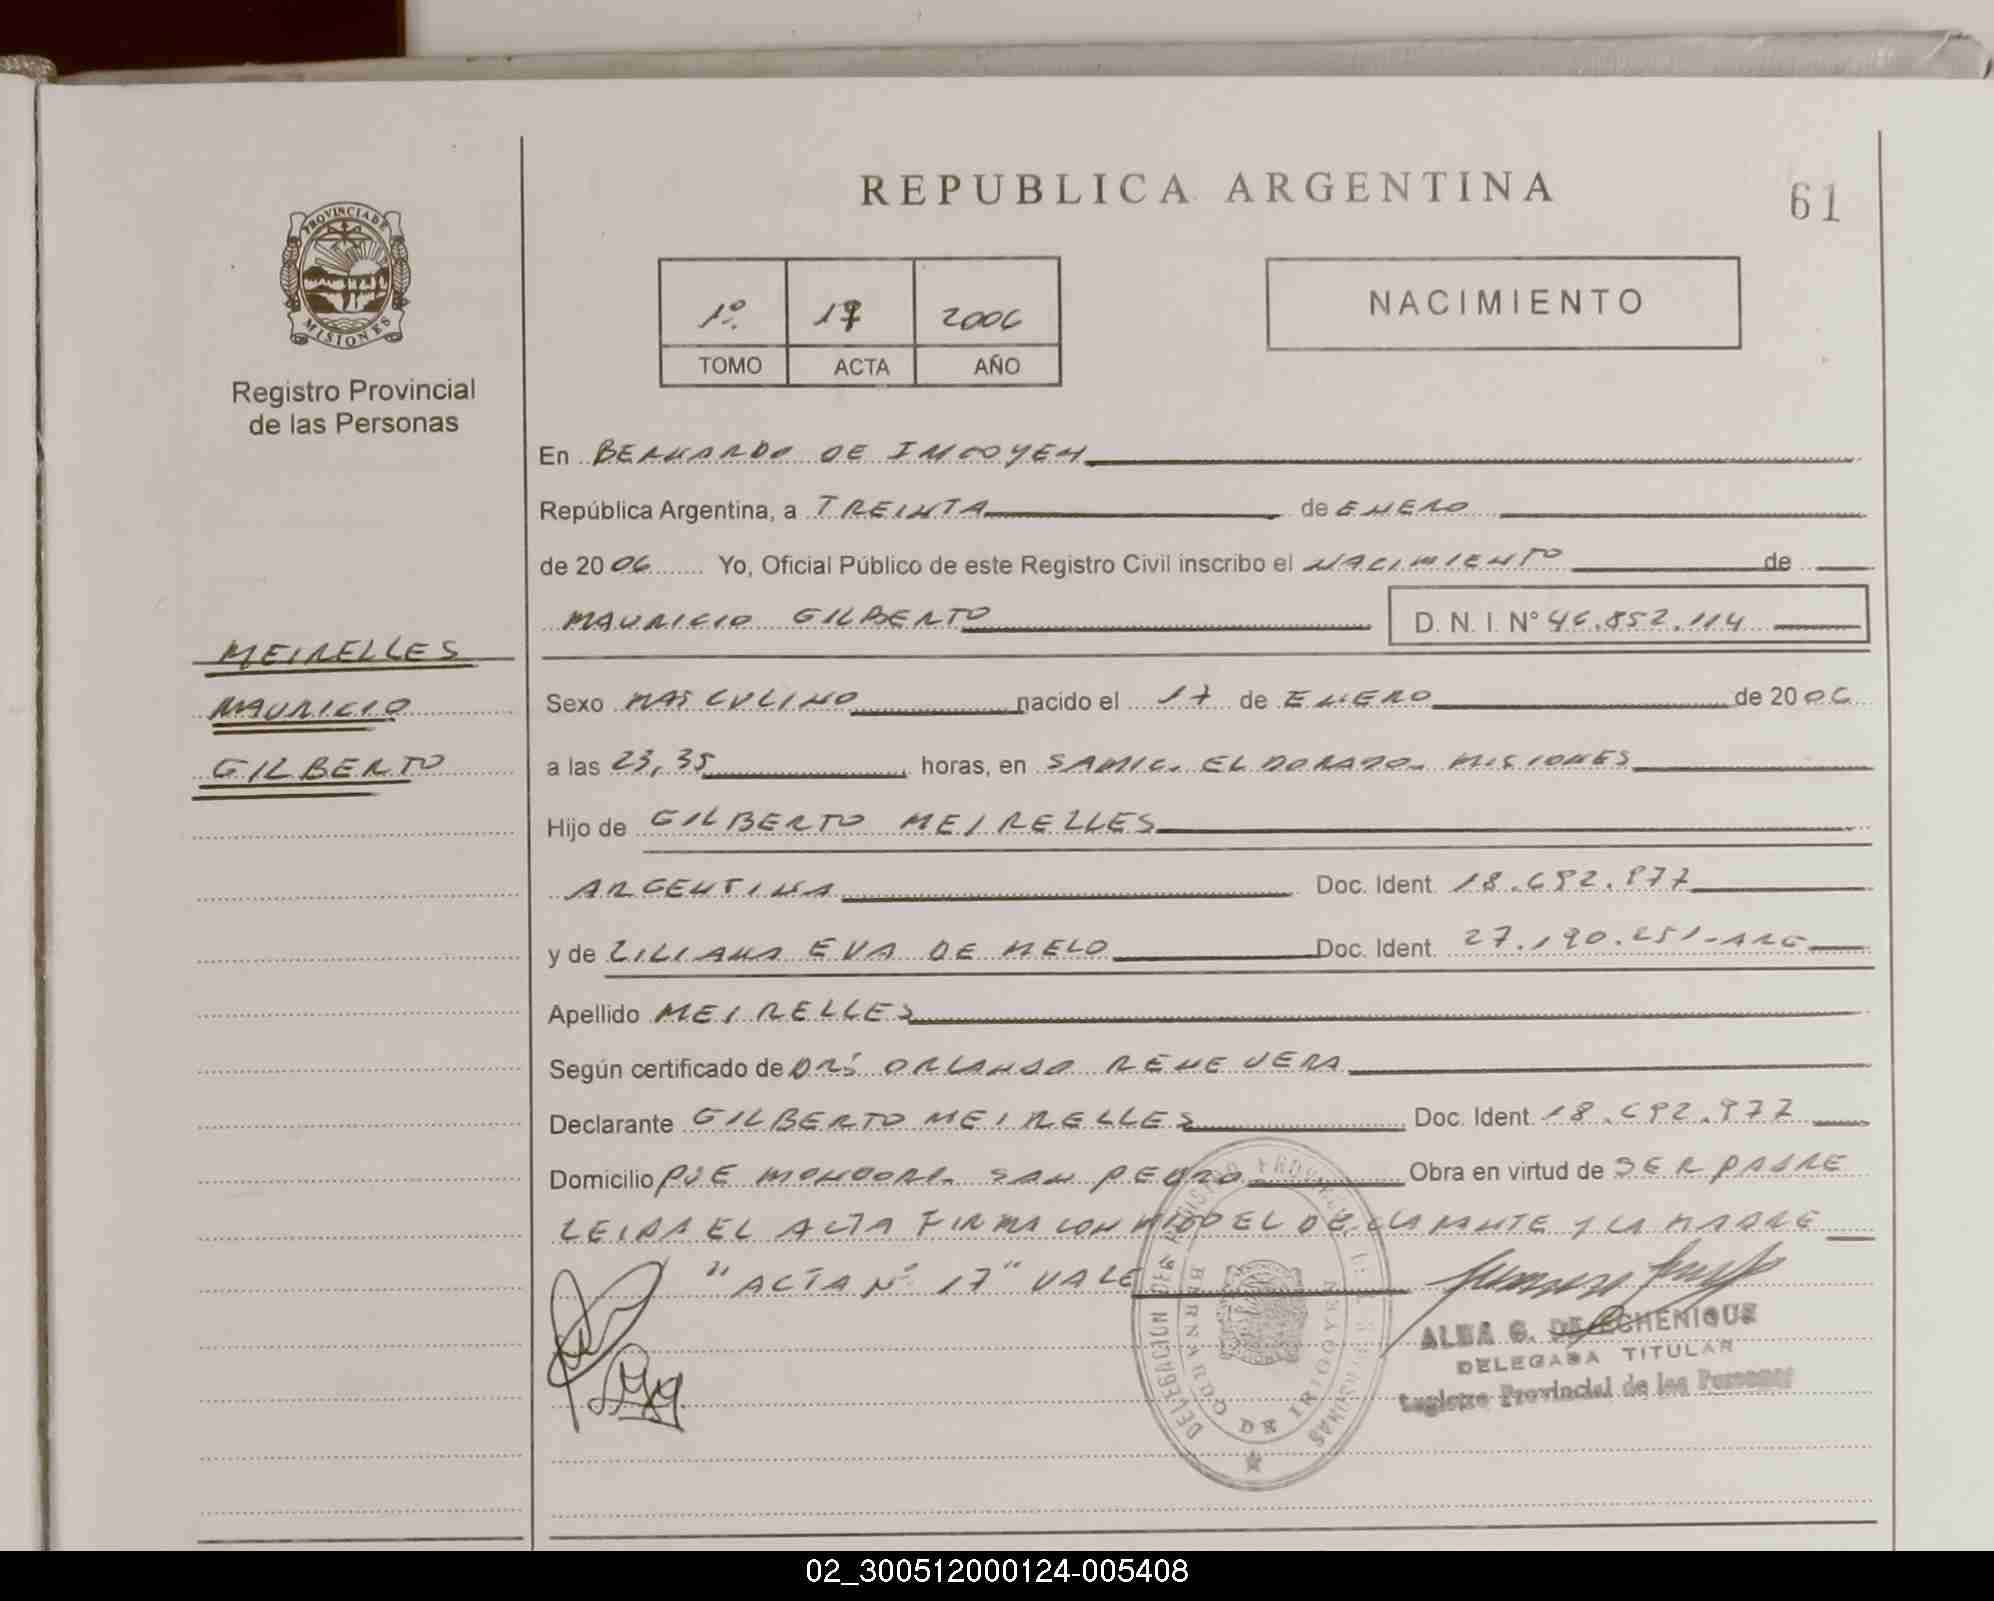 REPUBLICA ARGENTINA
61
PROVINCIA DE
MISIONES
Registro Provincial
de las Personas
1º. 17 2006
TOMO ACTA AÑO
NACIMIENTO
En BERNARDO DE IRIGOYEN
República Argentina, a TREINTA de ENERO
de 2006 Yo, Oficial Público de este Registro Civil inscribo el NACIMIENTO de
MAURICIO GILBERTO D. N. I. Nº 46.852.114
MEIRELLES
MAURICIO
GILBERTO
Sexo MASCULINO nacido el 17 de ENERO de 2006
a las 23,35 horas, en SAMIC. ELDORADO. MISIONES
Hijo de GILBERTO MEIRELLES
ARGENTINA Doc. Ident. 18.692.977
y de LILIANA EVA DE MELO Doc. Ident. 27.190.251-ARG
Apellido MEIRELLES
Según certificado de DR: ORLANDO RENE VERA
Declarante GILBERTO MEIRELLES Doc. Ident. 18.692.977
Domicilio PJE MONDORI. SAN PEDRO. Obra en virtud de SER PADRE
LEIDA EL ACTA FIRMA CONMIGO EL DECLARANTE Y LA MADRE
"ACTA Nº 17" VALE
DELEGACION DEL REGISTRO PROVINCIAL DE LAS PERSONAS
BERNARDO DE IRIGOYEN
ALBA G. DE ECHENIQUE
DELEGADA TITULAR
Registro Provincial de las Personas
02_300512000124-005408